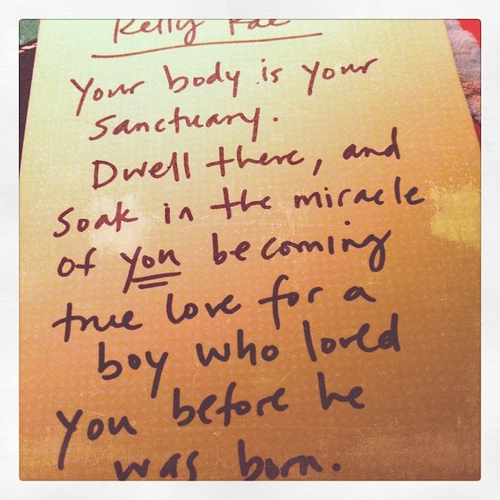 Kelly Rae
Your body is your
sanctuary.
Dwell there, and
soak in the miracle
of you becoming
true love for a
boy who loved
you before he
was born.